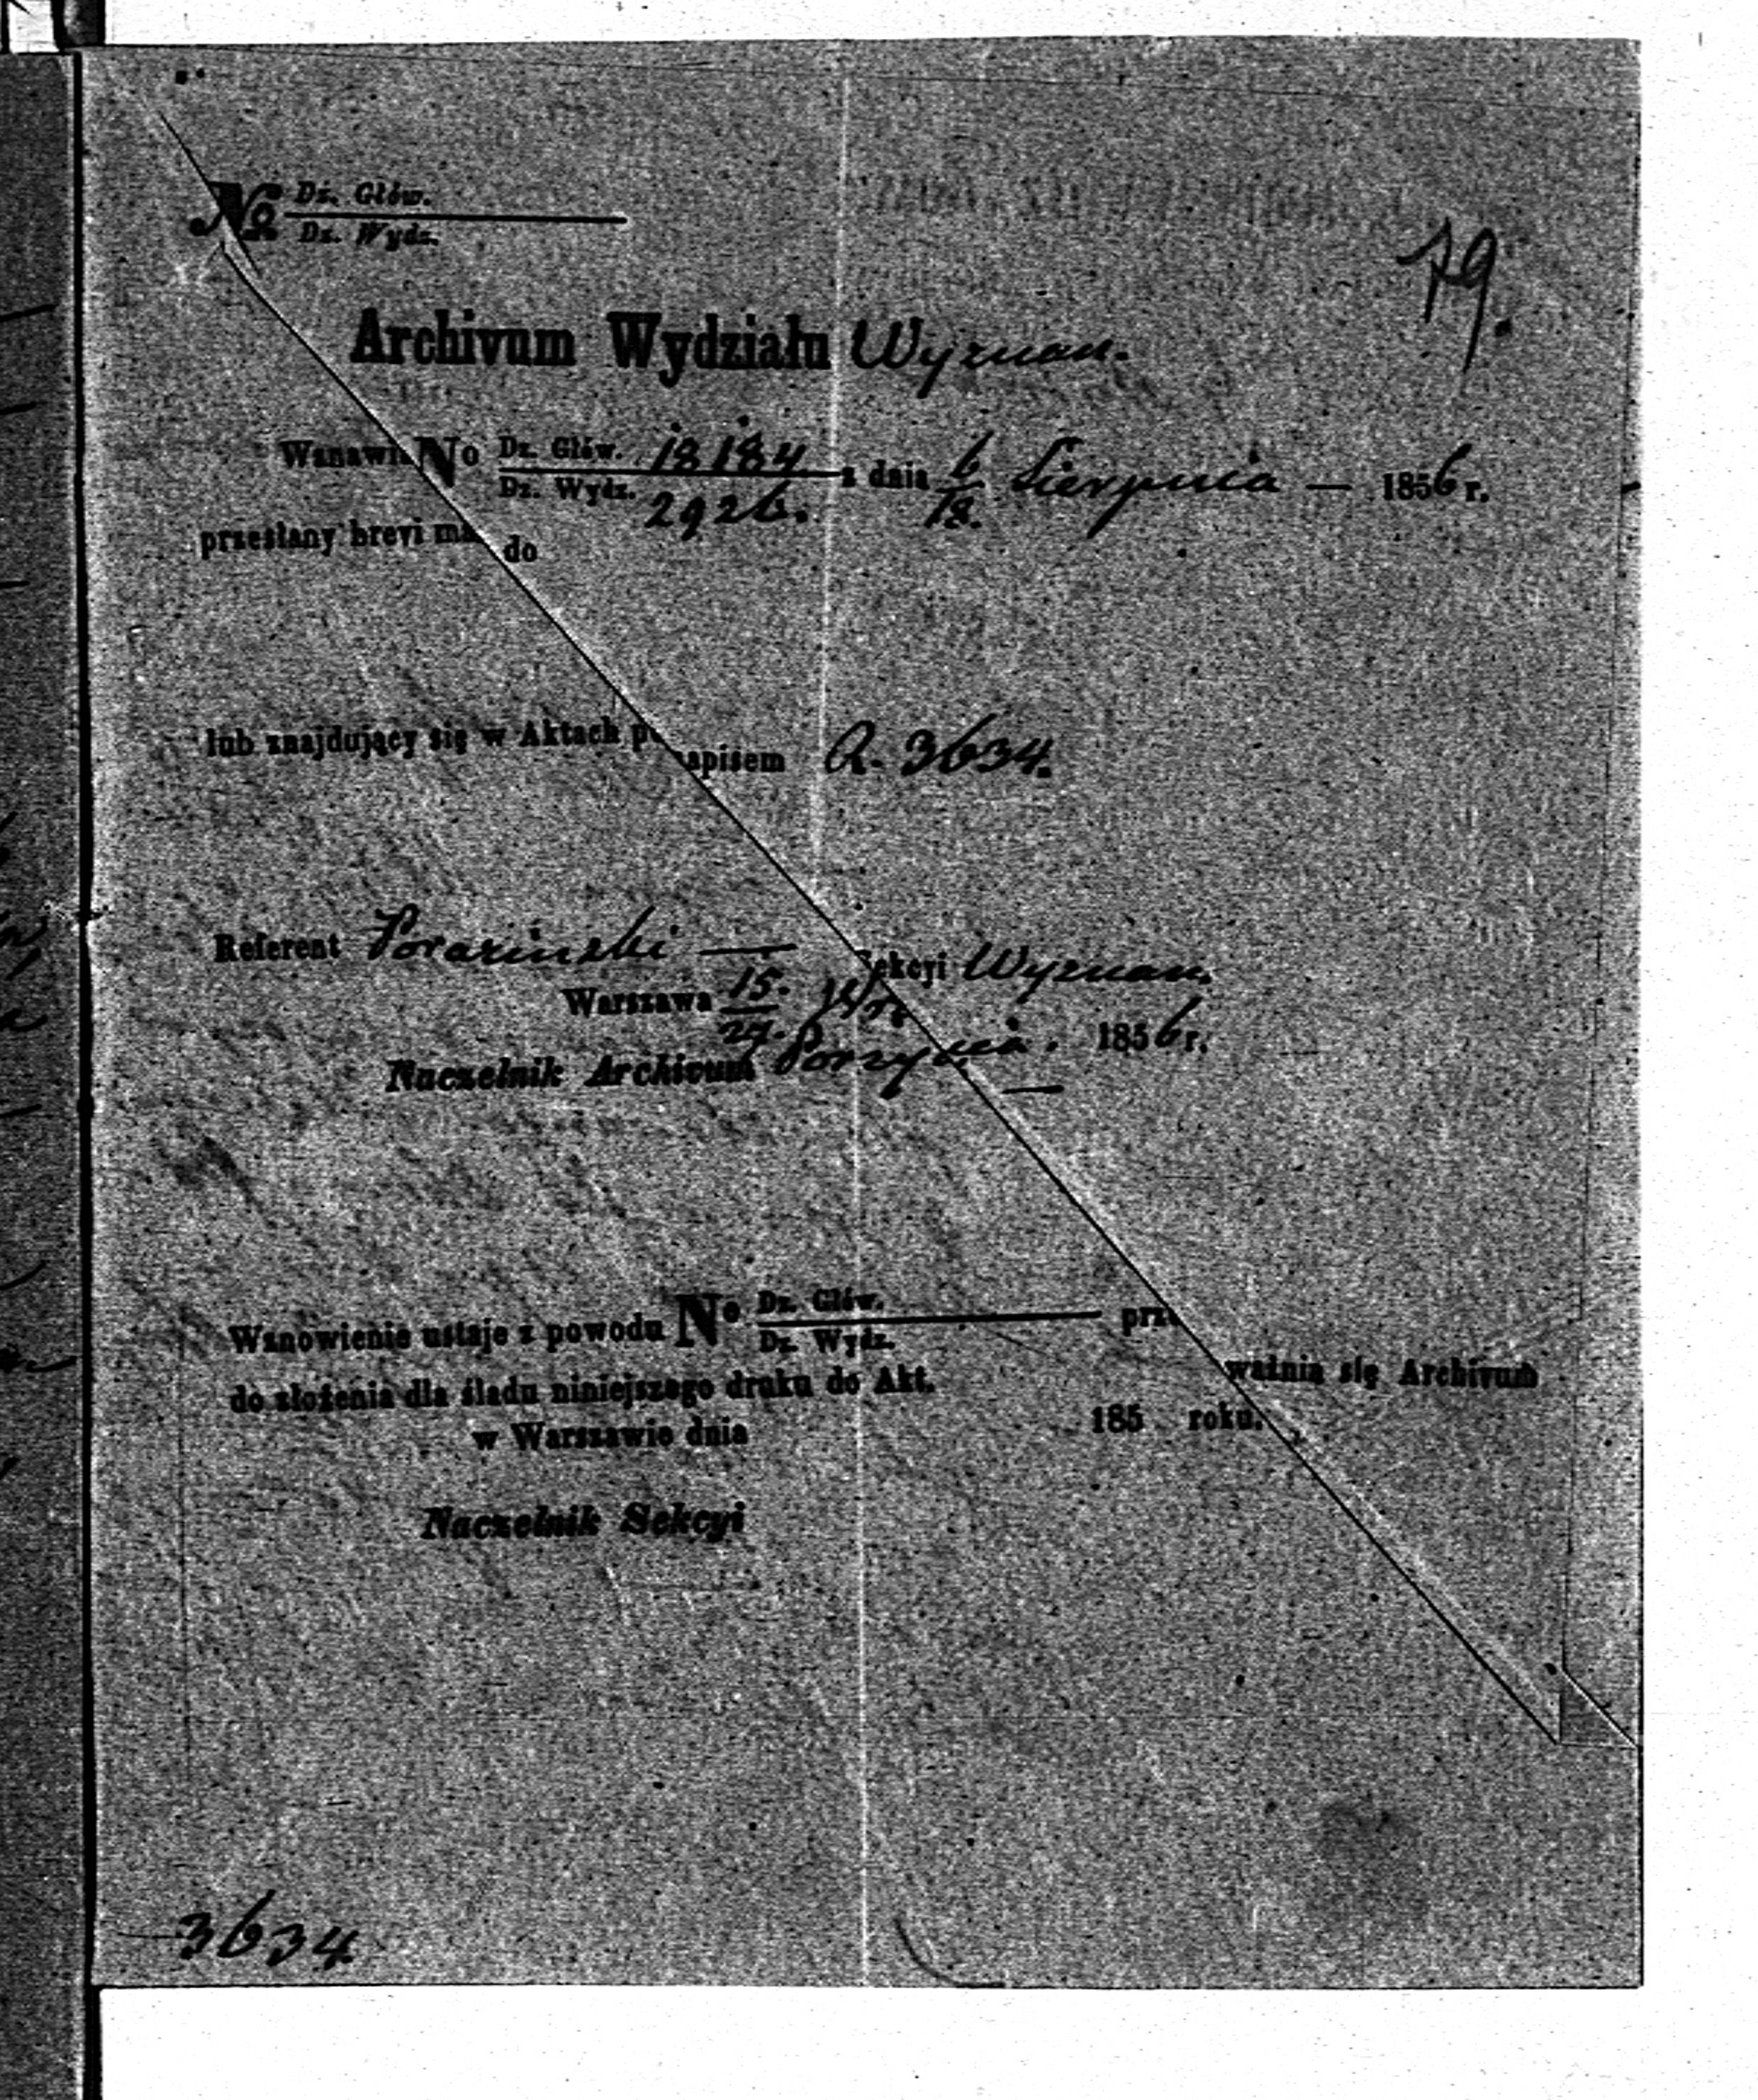 79.
№ Dz. Głów.
Dz. Wydz.
Archivum Wydziału Wyznań.
Wznawia No Dz. Głów. 18184 z dnia 6 Sierpnia — 1856 r.
Dz. Wydz. 2926. 18.
przesłany brevi ma do
lub znajdujący się w Aktach po apisem A. 3634.
Referent Poraziński — Sekcyi Wyznań.
Warszawa 15. 1856 r.
27.
Naczelnik Archivum
Wznowienie ustaje z powodu No Dz. Głów. prze
Dz. Wydz.
ważnia się Archivum
do złożenia dla śladu niniejszego druku do Akt.
w Warszawie dnia 185 roku.
Naczelnik Sekcyi
3634